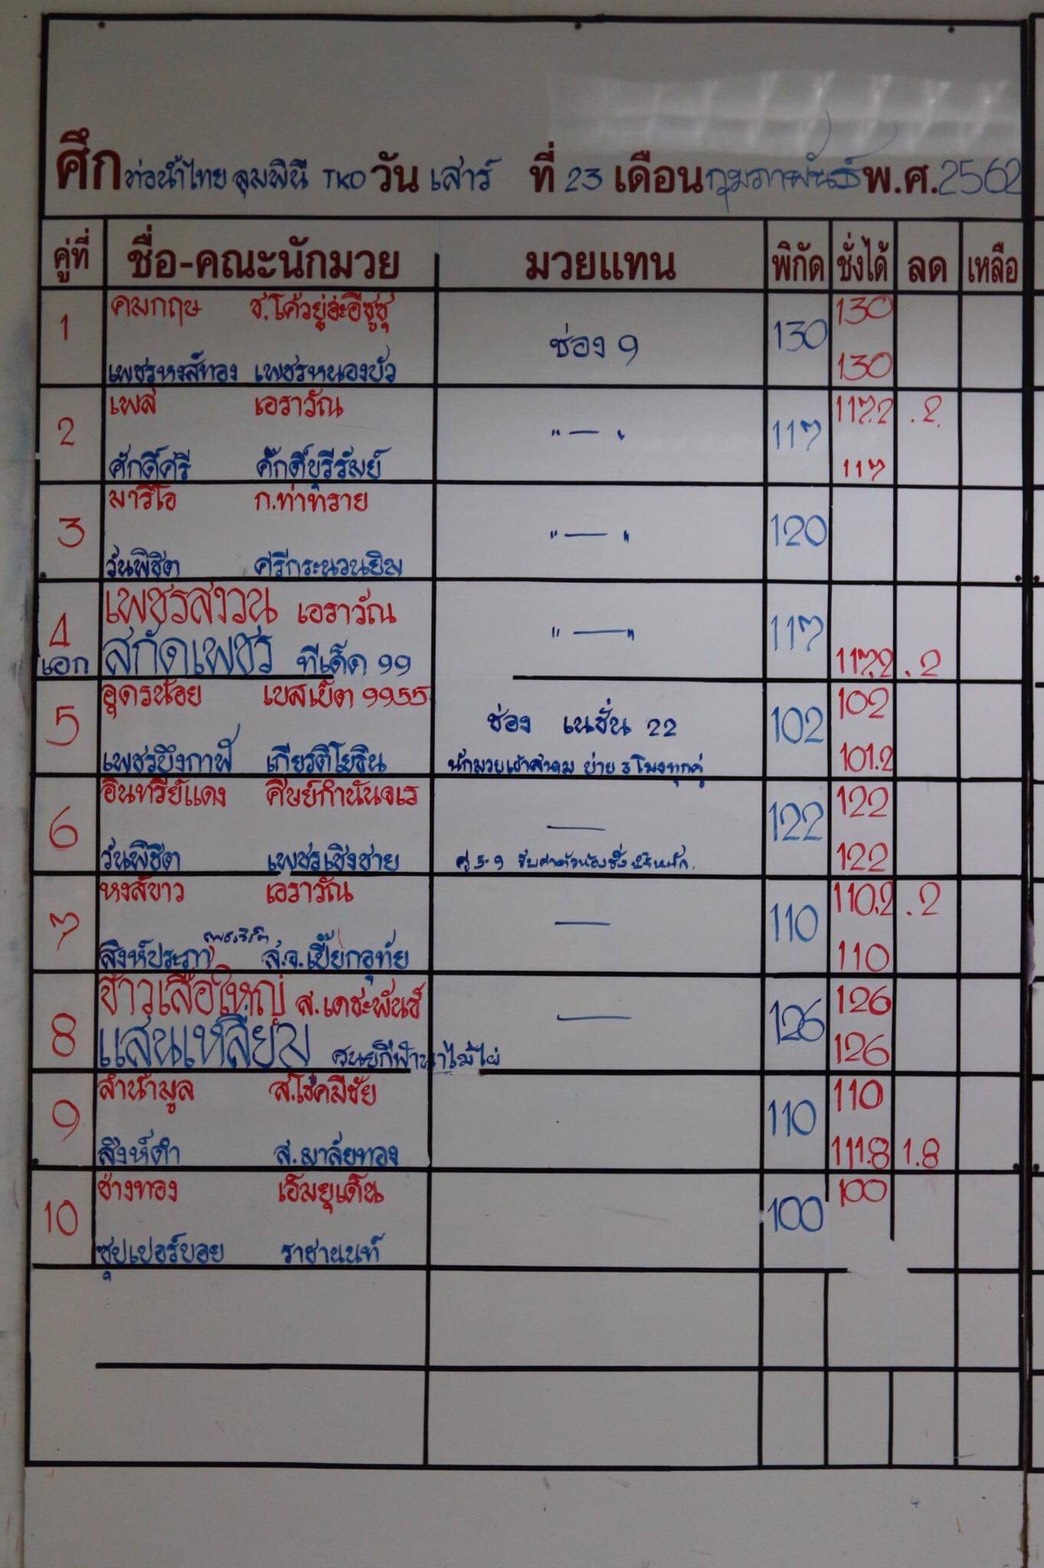 ศึก ท่อน้ำไทย ลุมพินี TKO วัน เสาร์ ที่ 23 เดือน กุมภาพันธ์ พ.ศ. 2562
คู่ที่ ชื่อ-คณะนักมวย มวยแทน พิกัด ชั่งได้ ลด เหลือ
คมกฤษ 130
1 ช่อง 9 130
เพชรหงส์ทอง เพชรหนองบัว 130
เพส เอราวัณ 117.2 .2
2 "—" 117
ศักดิ์ศรี ศักดิ์บุรีรัมย์ 117
มาริโอ ก.ท่าทราย
3 "—" 120
วันพิชิต ศรีกระนวนยิม
เพชรสาวน เอราวัณ
4 "—" 117
เอก สกัดเพชร ทีเด็ด 99 117.2 .2
อุดรน้อย เบสบิต 9955 102
5 ช่อง เนชั่น 22 102
เพชรบึงกาฬ เกียรติโยธิน 101.2
อินทรีย์แดง ศิษย์กำนันจเร 122
6 — 122
วันพิชิต เพชรเชิงชาย คู่ 5-9 122
หงส์ขาว เอราวัณ 110.2 .2
7 — 110
สิงห์ประภา ส.จ.เปี๊ยกอุทัย 110
จ้าวเสือใหญ่ ส.เดชะพันธ์ 126
8 — 126
แสนเหลี่ยม 126
ลำน้ำมูล ส.โชคมีชัย 110
9 110
สิงห์ดำ ส.มาลัยทอง 111.8 1.8
ช้างทอง เอ็มยูเด็น 100
10 100
ซุปเปอร์บอย ราชานนท์